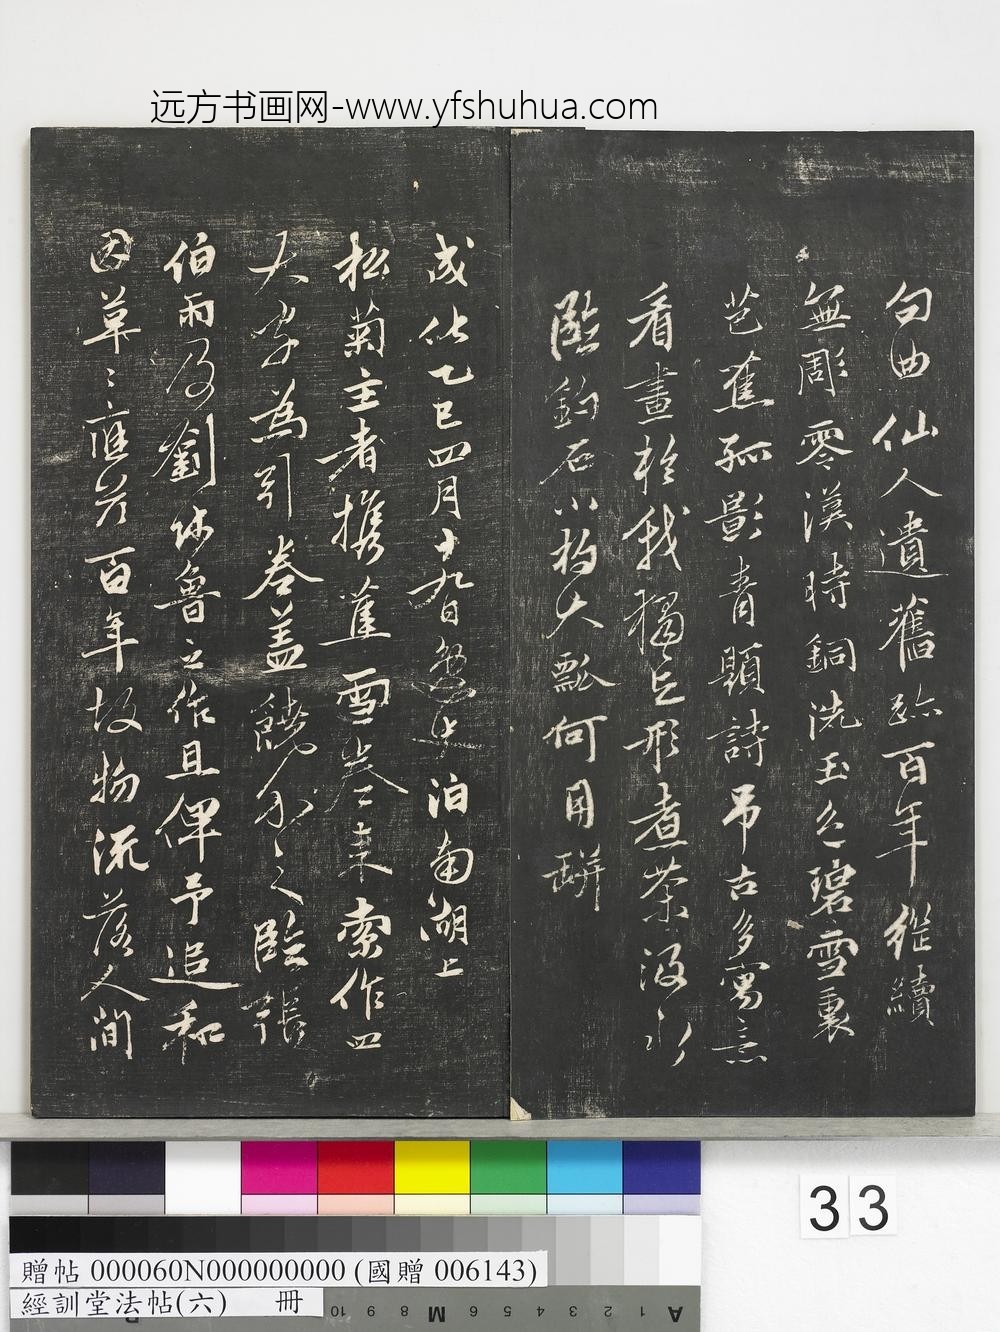 远方书画网-www.yfshuhua.com
句曲仙人遺舊跡百年縱續
無彫零漢時銅洗玉色碧雪裏
芭蕉孤影青題詩弔古多寓意
看畫於我猶忘形煮茶汲水
臨釣石小杓大瓢何用缾
成化乙巳四月十九日泊南湖上
松菊主者携蕉雪卷來索作四
大字為引卷蓋饒介之臨張
伯雨及劉師魯之作且俾予追和
因草〻應若百年故物流落人間
33
贈帖 000060N000000000 (國贈 006143)
經訓堂法帖(六) 冊
A 1 2 3 4 5 6 M 8 9 10